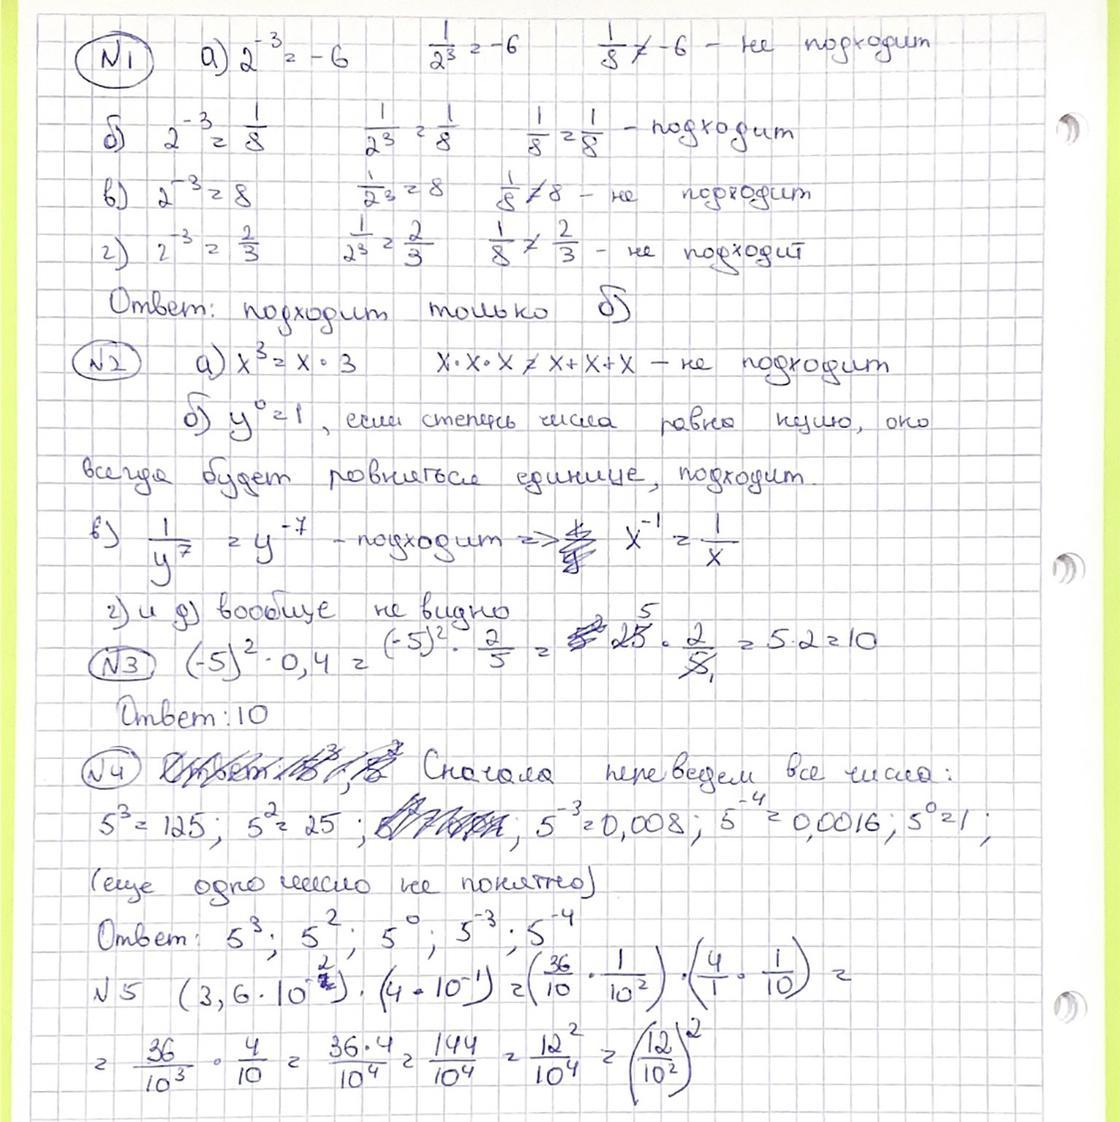 N1 а) 2⁻³ = -6 1/2³ = -6 1/8 ≠ -6 - не подходит
б) 2⁻³ = 1/8 1/2³ = 1/8 1/8 = 1/8 - подходит
в) 2⁻³ = 8 1/2³ = 8 1/8 ≠ 8 - не подходит
г) 2⁻³ = 2/3 1/2³ = 2/3 1/8 ≠ 2/3 - не подходит
Ответ: подходит только б)
N2 а) x³ = x · 3 x·x·x ≠ x+x+x - не подходит
б) y⁰ = 1, если степень числа равна нулю, оно
всегда будет ровняться единице, подходит.
в) 1/y⁷ = y⁻⁷ - подходит => x⁻¹ = 1/x
г) и д) вообще не видно
N3 (-5)² · 0,4 = (-5)² · 2/5 = 25 · 2/5 = 5·2=10
Ответ: 10
N4 Сначала переведем все числа:
5³ = 125; 5² = 25; ; 5⁻³ = 0,008; 5⁻⁴ = 0,0016; 5⁰ = 1;
(еще одно число не понятно)
Ответ: 5³; 5²; 5⁰; 5⁻³; 5⁻⁴
N5 (3,6 · 10⁻²) · (4 · 10⁻¹) = (36/10 · 1/10²) · (4/1 · 1/10) =
= 36/10³ · 4/10 = 36·4/10⁴ = 144/10⁴ = 12²/10⁴ = (12/10²)²